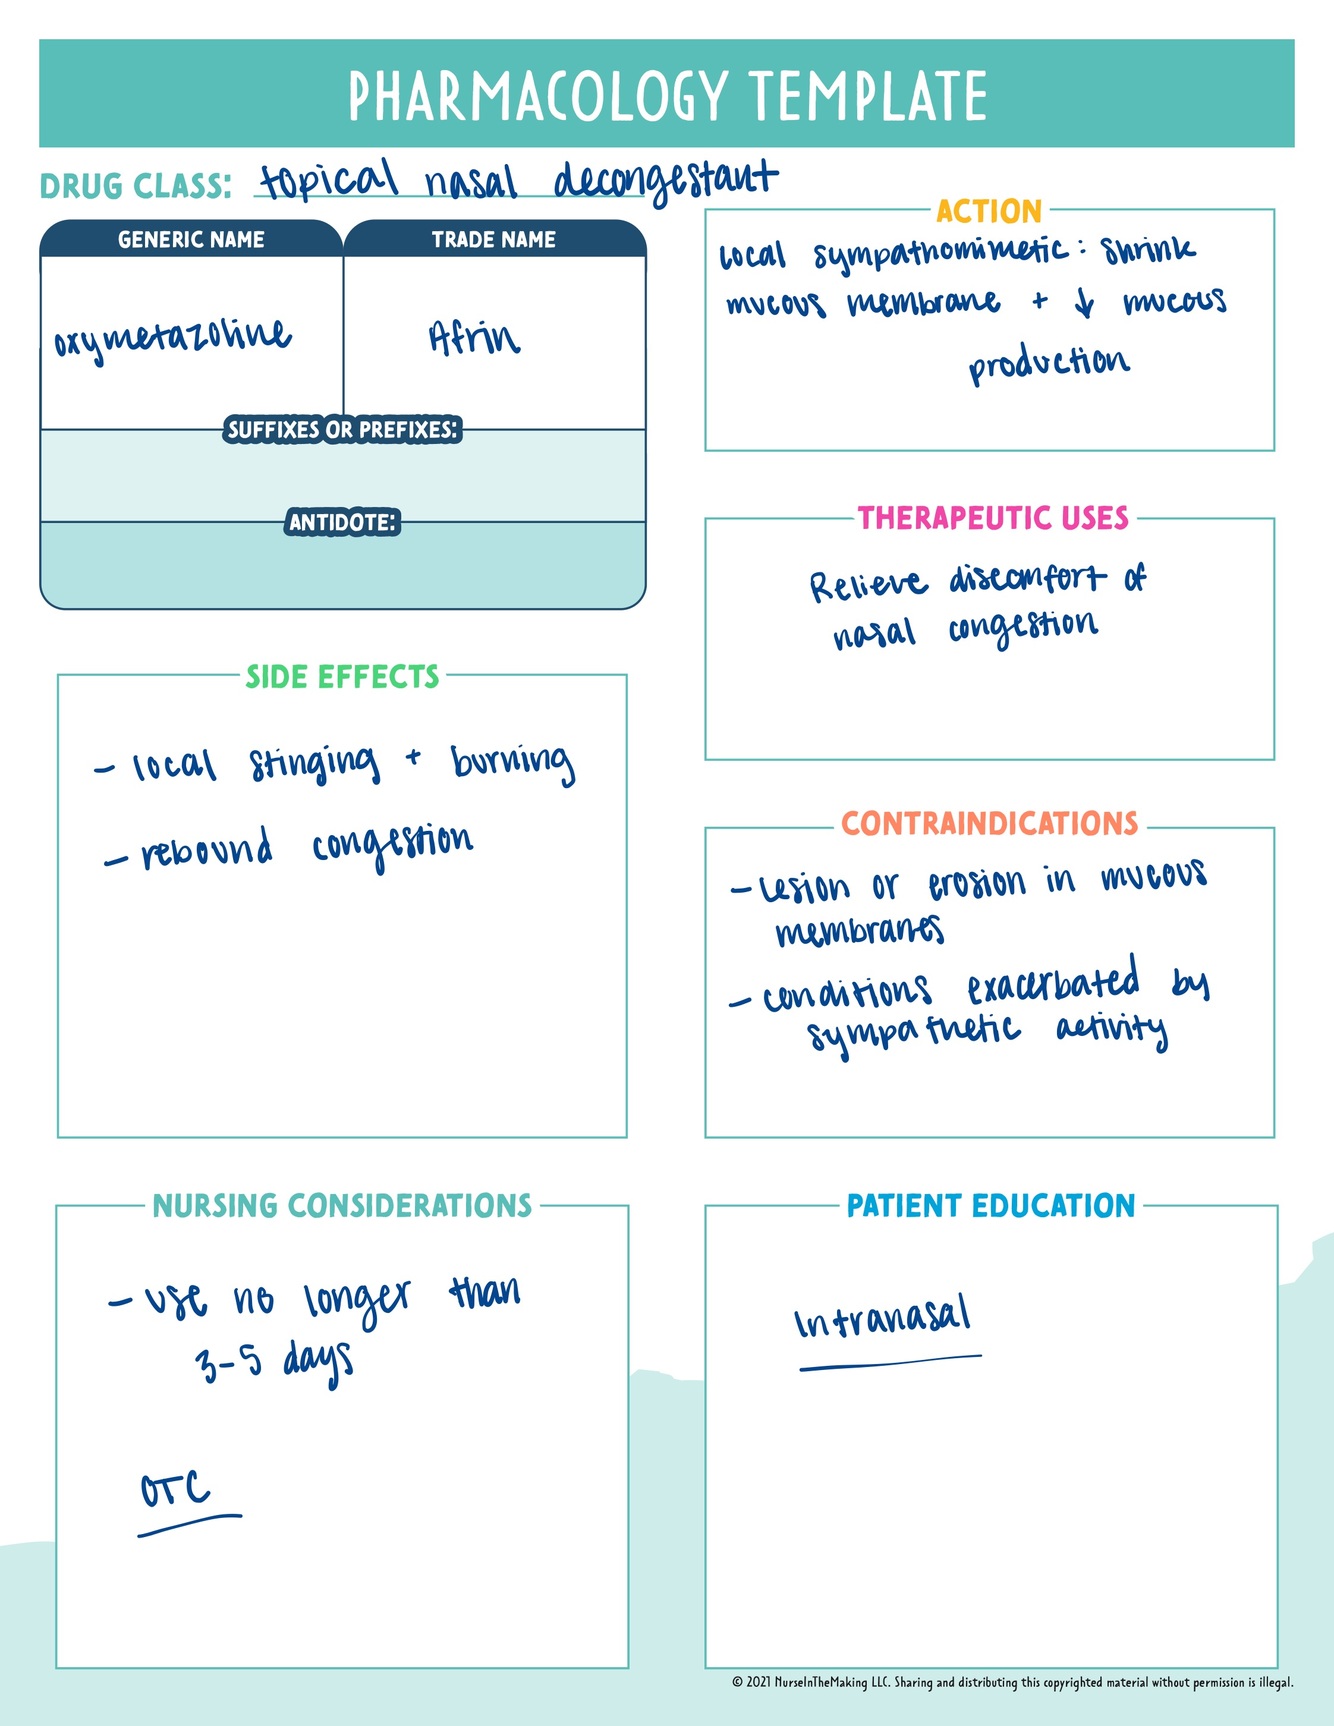 PHARMACOLOGY TEMPLATE
DRUG CLASS: topical nasal decongestant
GENERIC NAME
TRADE NAME
oxymetazoline
Afrin
SUFFIXES OR PREFIXES:
ANTIDOTE:
ACTION
local sympathomimetic: shrink
mucous membrane + ↓ mucous
production
THERAPEUTIC USES
Relieve discomfort of
nasal congestion
SIDE EFFECTS
- local stinging + burning
- rebound congestion
CONTRAINDICATIONS
- lesion or erosion in mucous
membranes
- conditions exacerbated by
sympathetic activity
NURSING CONSIDERATIONS
- use no longer than
3-5 days
OTC
PATIENT EDUCATION
Intranasal
© 2021 NurseInTheMaking LLC. Sharing and distributing this copyrighted material without permission is illegal.